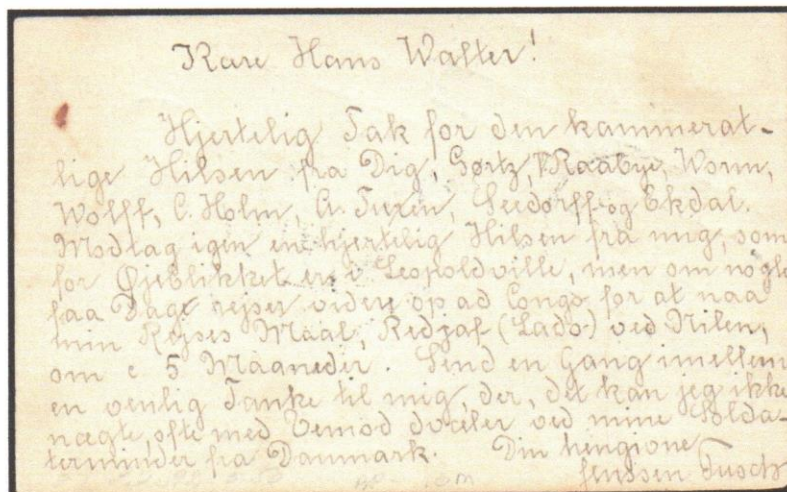 Kære Hans Walter!
Hjertelig Tak for den kammerat-
lige Hilsen fra Dig, Gørtz, Raabye, Worm,
Wolff, C. Holm, A. Turén, Seedorff og Ekdal.
Modtag igen en hjertelig Hilsen fra mig, som
for Øjeblikket er i Leopoldville, men om nogle
faa Dage rejser videre op ad Congo for at naa
min Rejses Maal, Redjaf (Lado) ved Nilen,
om c 5 Maaneder. Send en Gang imellem
en venlig Tanke til mig, der, det kan jeg ikke
nægte, ofte med Vemod dvæler ved mine Solda-
terminder fra Danmark. Din hengivne
Jenssen Tusch